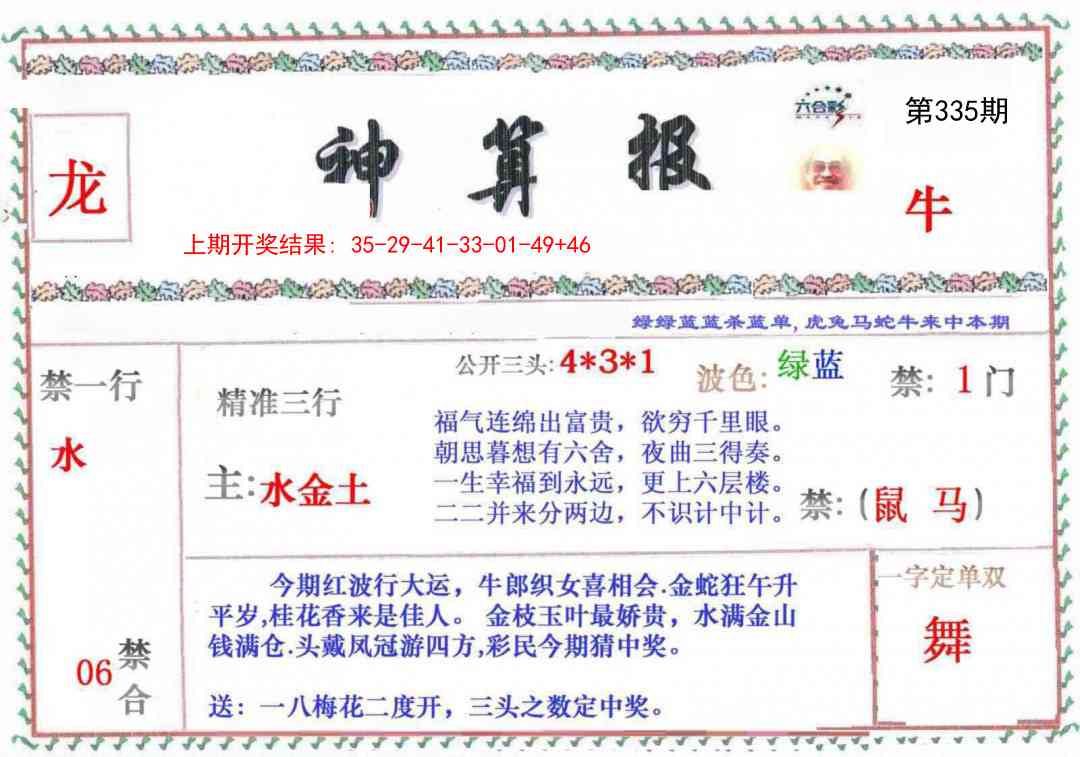 六合彩
第335期
龙
神算报
牛
上期开奖结果: 35-29-41-33-01-49+46
绿绿蓝蓝杀蓝单, 虎兔马蛇牛来中本期
禁一行
水
精准三行
主:水金土
公开三头: 4*3*1
波色: 绿蓝
禁: 1门
福气连绵出富贵，欲穷千里眼。
朝思暮想有六舍，夜曲三得奏。
一生幸福到永远，更上六层楼。
二二并来分两边，不识计中计。
禁: (鼠 马)
今期红波行大运，牛郎织女喜相会.金蛇狂午升
平岁,桂花香来是佳人。 金枝玉叶最娇贵，水满金山
钱满仓.头戴凤冠游四方,彩民今期猜中奖。
送：一八梅花二度开，三头之数定中奖。
一字定单双
舞
06
禁合